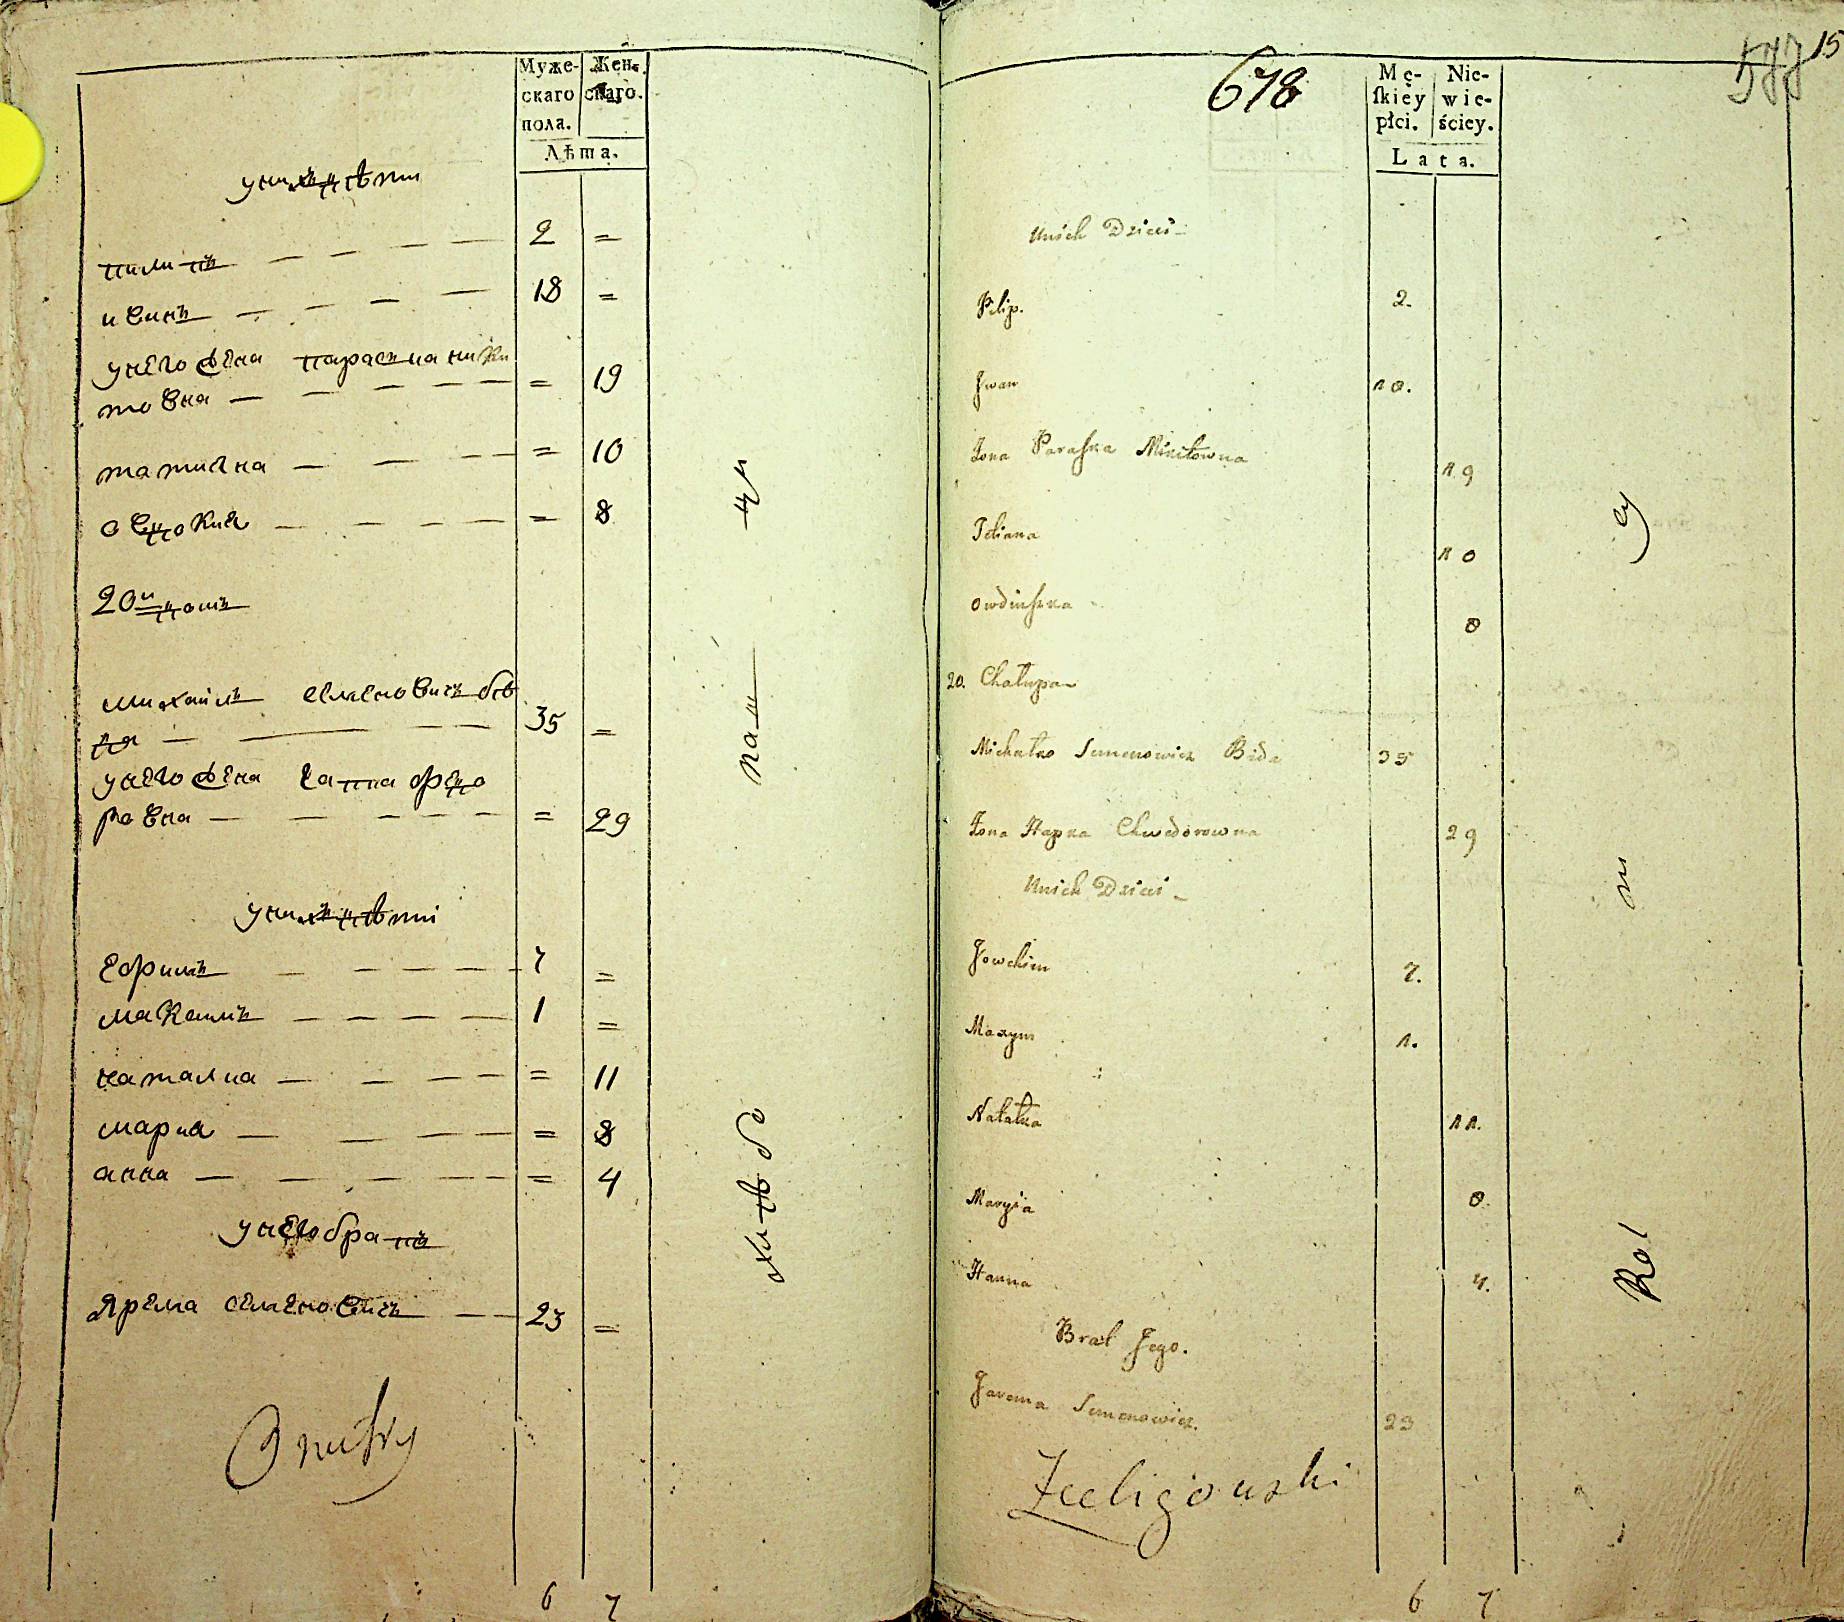 Муже-
скаго
пола.
Жен-
скаго.
Лѣта.
у нихъ дѣти
пилипъ 2 =
иванъ 18 =
у него жена параския ники
товна = 19
татияна = 10
овдокия = 8
20й домъ
михайлъ семеновичъ бѣ
да 35 =
у него жена гапка федо
ровна = 29
у нихъ дѣти
ефимъ 7 =
максимъ 1 =
наталиа = 11
мариа = 8
анна = 4
у него братъ
ярема семеновичъ 23 =
Onufry
6 7
678
577
15
Mę-
ſkiéy
płci.
Nie-
wie-
ściey.
Lata.
Unich Dzieci
Pilip. 2.
Jwan 18.
Żona Paraska Mikitowna 19
Tetiana 10
Owdiuszka 8
20. Chałupa
Michałko Semenowicz Bida 35
Żona Hapka Chwedorowna 29
Unich Dzieci
Jowchim 7.
Maxym 1.
Natałka 11.
Maryia 8
Hanna 4.
Brat Jego.
Jarema Semenowicz. 23
Żeeligowski
6 7